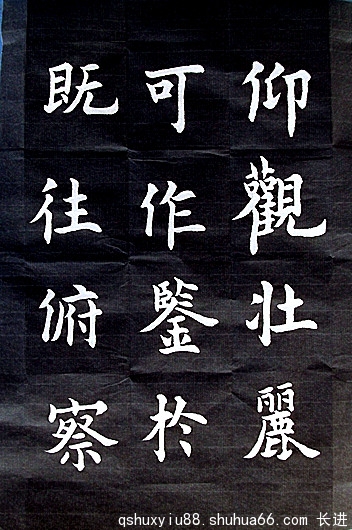 仰觀壯麗
可作鑒於
既往俯察
qshuxyiu88.shuhua66.com 长进